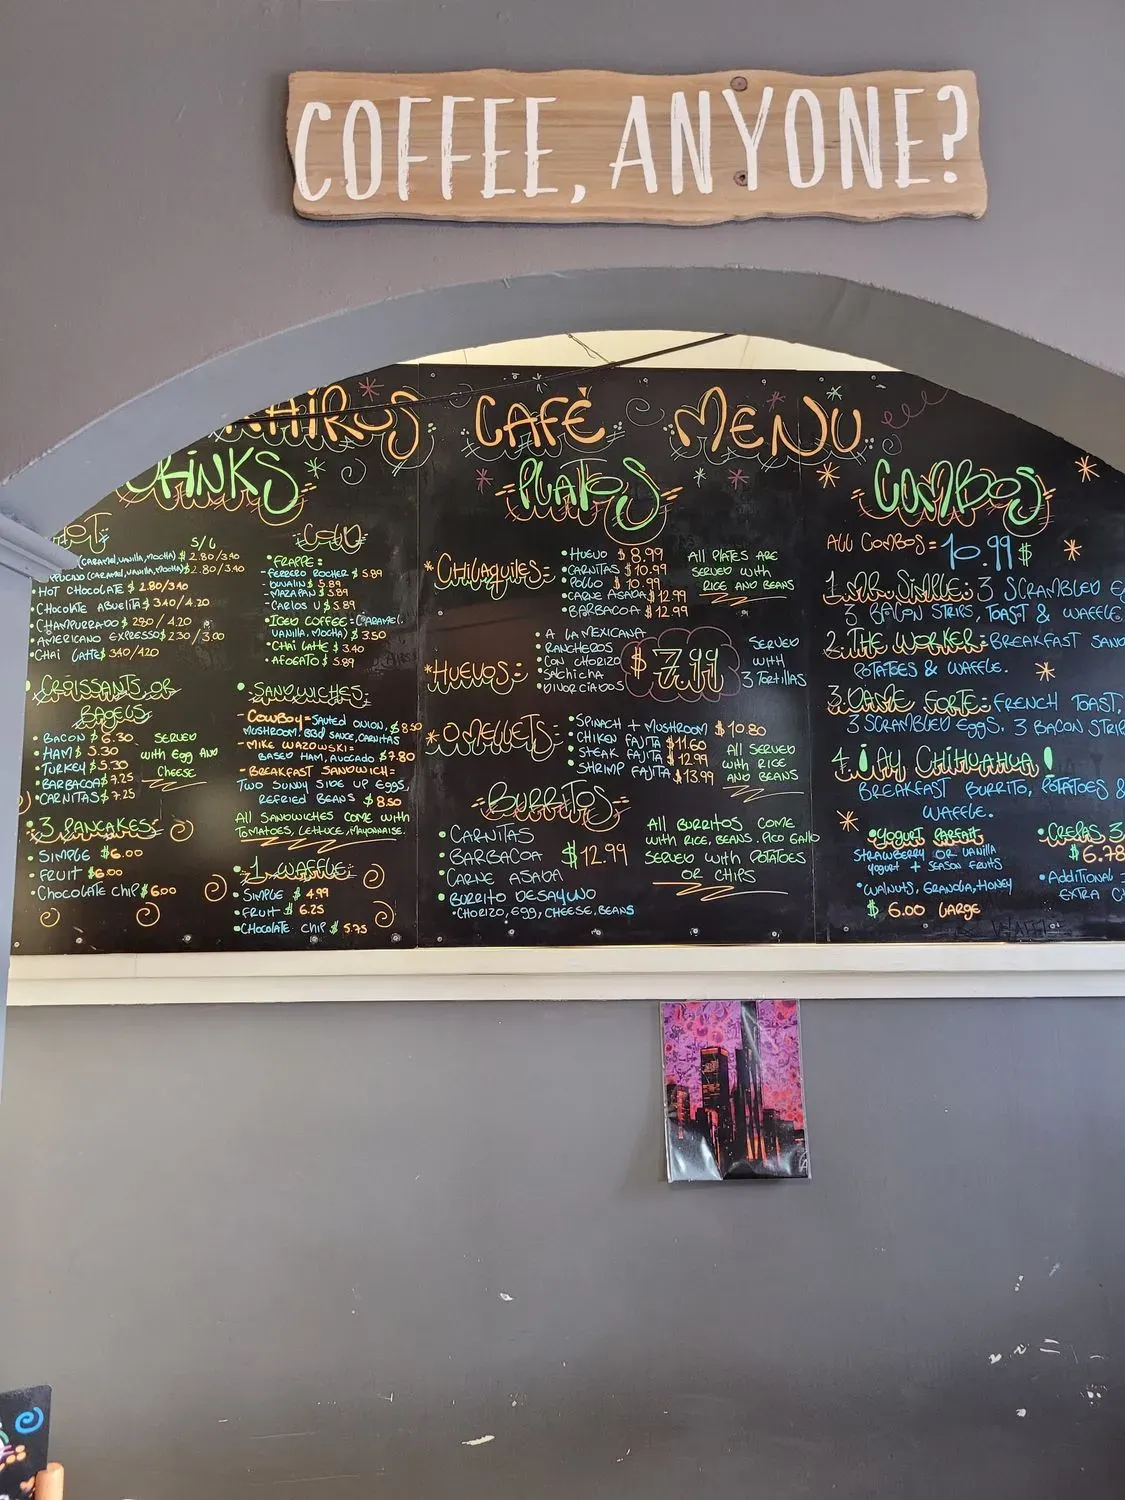 COFFEE, ANYONE?
CAFÉ MENU
DRINKS
HOT
S/L
(CARAMEL, VANILLA, MOCHA) $ 2.80/3.40
(CARAMEL, VANILLA, MOCHA) $2.80/3.40
•HOT CHOCOLATE $ 2.80/3.40
•CHOCOLATE ABUELITA $ 3.40/4.20
•CHAMPURRADO $ 2.90/4.20
•AMERICANO EXPRESSO $ 2.30/3.00
•CHAI LATTE $ 3.40/4.20
COLD
•FRAPPE:
-FERRERO ROCHER $ 5.89
$ 5.89
-MAZAPAN $ 5.89
-CARLOS V $ 5.89
•ICED COFFEE=(CARAMEL,
VANILLA, MOCHA) $ 3.50
•CHAI LATTE $ 3.40
•AFOGATO $ 5.89
•CROISSANTS OR
BAGELS
•BACON $ 6.30
•HAM $ 5.30
•TURKEY $ 5.30
•BARBACOA $ 7.25
•CARNITAS $ 7.25
SERVED
WITH EGG AND
CHEESE
•3 PANCAKES:
•SIMPLE $6.00
•FRUIT $6.00
•CHOCOLATE CHIP $6.00
•SANDWICHES:
-COWBOY=SAUTED ONION, $8.50
MUSHROOM, BBQ SAUCE, CARNITAS
-MIKE WAZOWSKI=
BASED HAM, AVOCADO $7.80
-BREAKFAST SANDWICH=
TWO SUNNY SIDE UP EGGS,
REFRIED BEANS $ 8.50
ALL SANDWICHES COME WITH
TOMATOES, LETTUCE, MAYONAISE.
•1 WAFFLE:
SIMPLE $ 4.99
•FRUIT $ 6.25
•CHOCOLATE CHIP $ 5.75
PLATOS
*CHILAQUILES:
•HUEVO $ 8.99
•CARNITAS $10.99
•POLLO $ 10.99
•CARNE ASADA $ 12.99
•BARBACOA $ 12.99
ALL PLATES ARE
SERVED WITH
RICE AND BEANS
*HUEVOS:
•A LA MEXICANA
•RANCHEROS
•CON CHORIZO
•SALCHICHA
•DIVORCIADOS
$ 7.99
SERVED
WITH
3 TORTILLAS
*OMELLETS
•SPINACH + MUSHROOM $ 10.80
•CHIKEN FAJITA $11.60
•STEAK FAJITA $12.99
•SHRIMP FAJITA $ 13.99
ALL SERVED
WITH RICE
AND BEANS
BURRITOS
•CARNITAS
•BARBACOA
•CARNE ASADA
$12.99
•BURRITO DESAYUNO
•CHORIZO, EGG, CHEESE, BEANS
ALL BURRITOS COME
WITH RICE, BEANS, PICO GALLO
SERVED WITH POTATOES
OR CHIPS
COMBOS
ALL COMBOS= 10.99$
3 SCRAMBLED
3 BACON STRIPS, TOAST & WAFFLE.
2.THE WORKER: BREAKFAST
POTATOES & WAFFLE.
FRENCH TOAST,
3 SCRAMBLED EGGS, 3 BACON
4.¡AY CHIHUAHUA!
BREAKFAST BURRITO, POTATOES &
WAFFLE.
•YOGURT PARFAIT
STRAWBERRY OR VANILLA
YOGURT + SEASON FRUITS
•WALNUTS, GRANOLA, HONEY
$ 6.00 LARGE
•CREPAS 3
$6.78
•ADDITIONAL
EXTRA